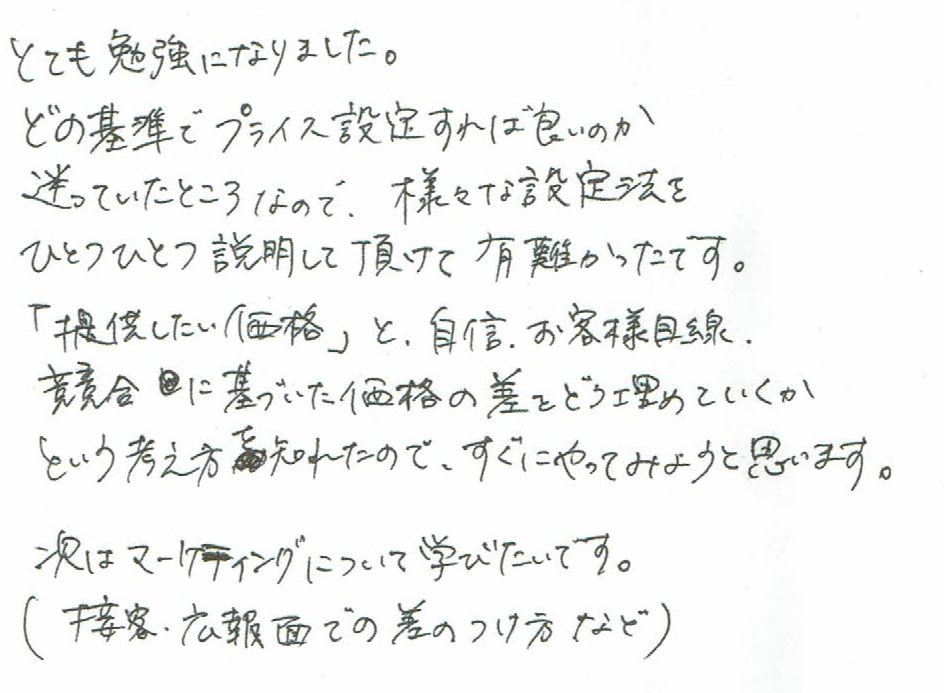 とても勉強になりました。
どの基準でプライス設定すれば良いのか
迷っていたところなので、様々な設定法を
ひとつひとつ説明して頂けて有難かったです。
「提供したい価格」と、自信、お客様目線、
競合に基づいた価格の差をどう埋めていくか
という考え方を知れたので、すぐにやってみようと思います。
次はマーケティングについて学びたいです。
(接客・広報面での差のつけ方など)